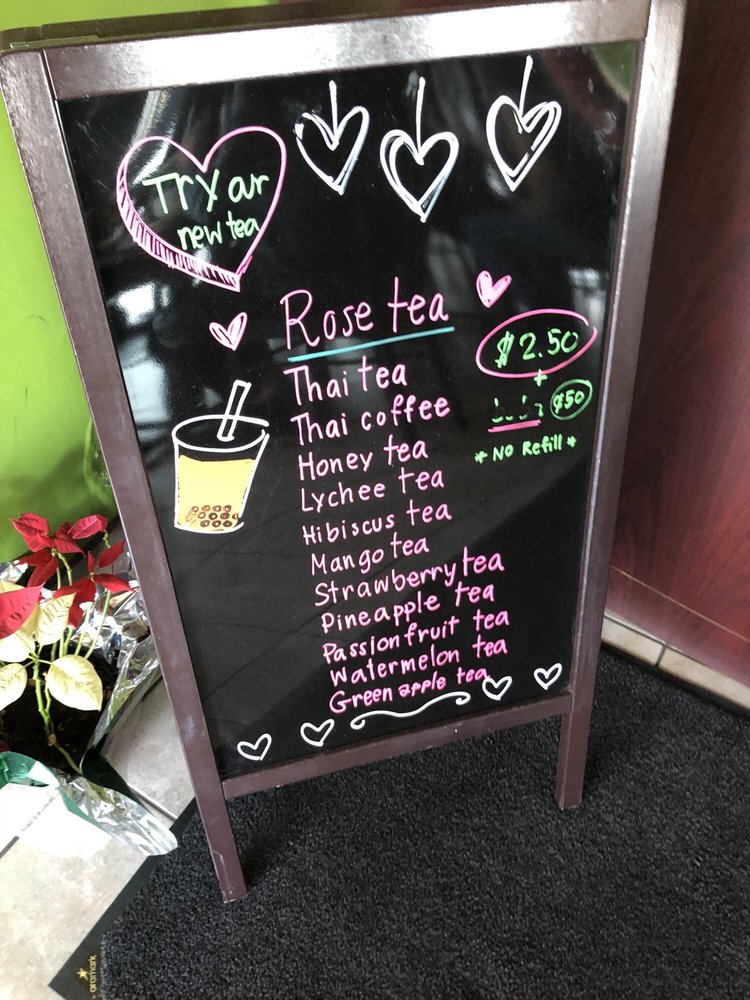 Try our
new tea
Rose tea
$2.50
+
$50
* No Refill *
Thai tea
Thai coffee
Honey tea
Lychee tea
Hibiscus tea
Mango tea
Strawberry tea
Pineapple tea
Passion fruit tea
Watermelon tea
Green apple tea
aramark